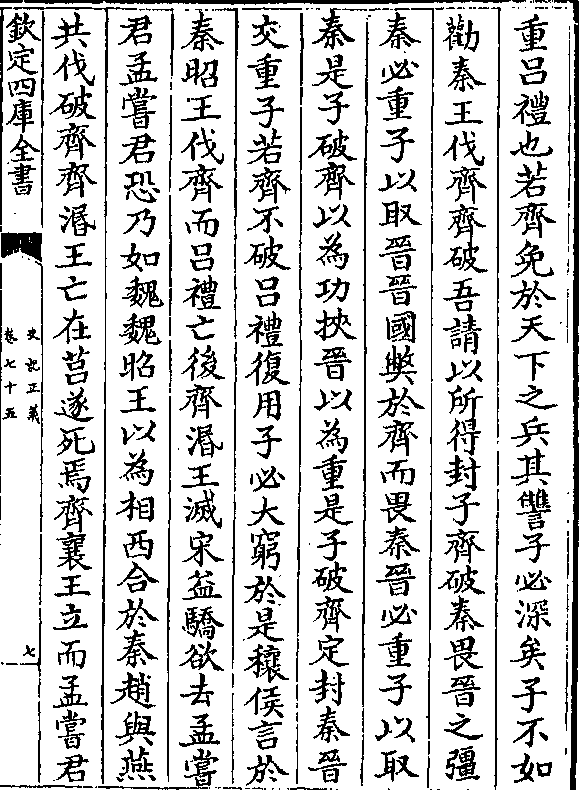 重吕禮也若齊免於天下之兵其讐子必深矣子不如
勸秦王伐齊齊破吾請以所得封子齊破秦畏晉之彊
秦必重子以取晉晉國弊於齊而畏秦晉必重子以取
秦是子破齊以為功挾晉以為重是子破齊定封秦晉
交重子若齊不破吕禮復用子必大窮於是穰侯言於
秦昭王伐齊而吕禮亡後齊湣王滅宋益驕欲去孟嘗
君孟嘗君恐乃如魏魏昭王以為相西合於秦趙與燕
共伐破齊齊湣王亡在莒遂死焉齊襄王立而孟嘗君
欽定四庫全書
史記正義
卷七十五
七